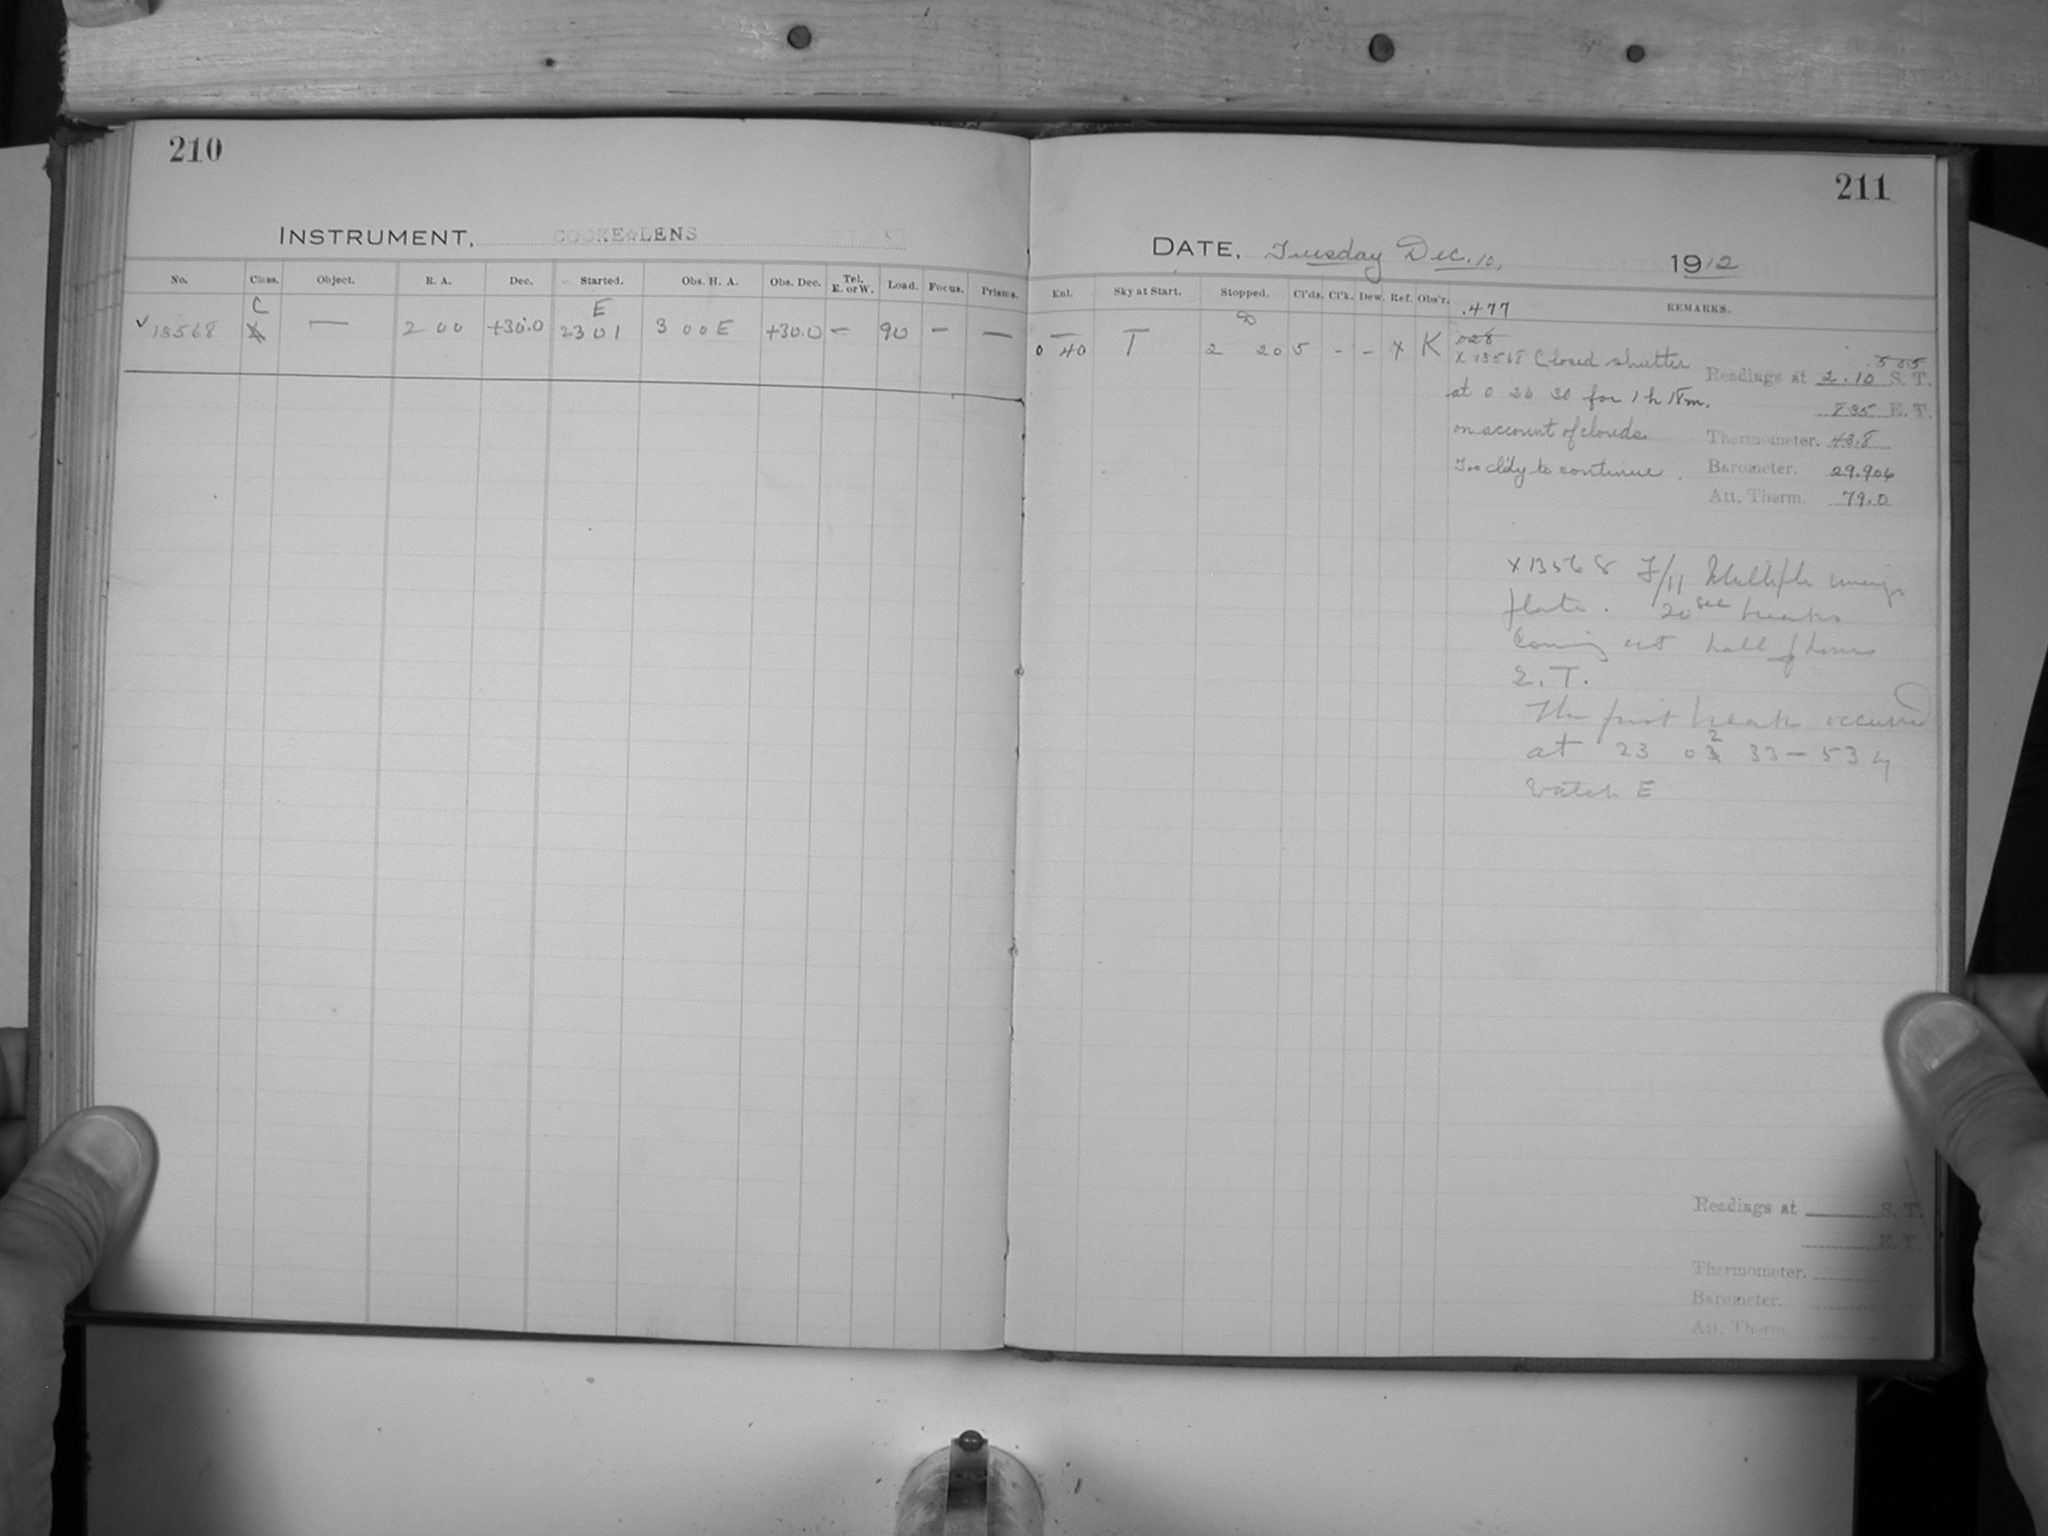 210
INSTRUMENT, COOKE☆LENS
No. Class. Object. R. A. Dec. Started. Obs. H. A. Obs. Dec. Tel. E. or W. Load. Focus. Prisms.
C E
✓ 13568 — 2 00 +30.0 2301 3 00 E +30.0 – 90 – —
211
DATE, Tuesday Dec. 10, 1912
Enl. Sky at Start. Stopped. Cl'ds. Cl'k. Dew. Ref. Obs'r. REMARKS.
.477
D
0 40 T 2 20 5 - - x K
X 13568 Closed shutter
at 0 26 30 for 1 h 18m.
on account of clouds.
Too cl'dy to continue.
.505
Readings at 2.10 S. T.
835 E. T.
Thermometer. 43.8
Barometer. 29.906
Att. Therm. 79.0
X13568 F/11 Multiple image
plate. 20 sec breaks
Coming at half hours
E. T.
The first break occurred
at 23 02 33 – 53 by
Watch E
Readings at S. T.
E. T.
Thermometer.
Barometer.
Att. Therm.